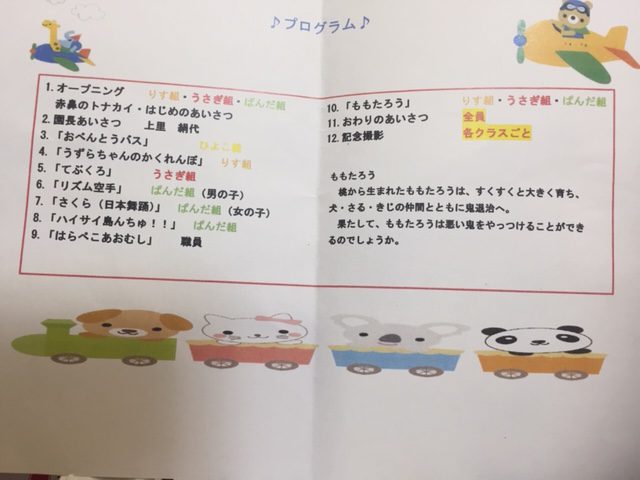 ♪プログラム♪
1.オープニング りす組・うさぎ組・ぱんだ組
赤鼻のトナカイ・はじめのあいさつ
2.園長あいさつ 上里 絹代
3.「おべんとうバス」 ひよこ組
4.「うずらちゃんのかくれんぼ」 りす組
5.「てぶくろ」 うさぎ組
6.「リズム空手」 ぱんだ組(男の子)
7.「さくら(日本舞踊)」 ぱんだ組(女の子)
8.「ハイサイ島んちゅ!!」 ぱんだ組
9.「はらぺこあおむし」 職員
10.「ももたろう」 りす組・うさぎ組・ぱんだ組
11.おわりのあいさつ 全員
12.記念撮影 各クラスごと
ももたろう
桃から生まれたももたろうは、すくすくと大きく育ち、
犬・さる・きじの仲間とともに鬼退治へ。
果たして、ももたろうは悪い鬼をやっつけることができ
るのでしょうか。